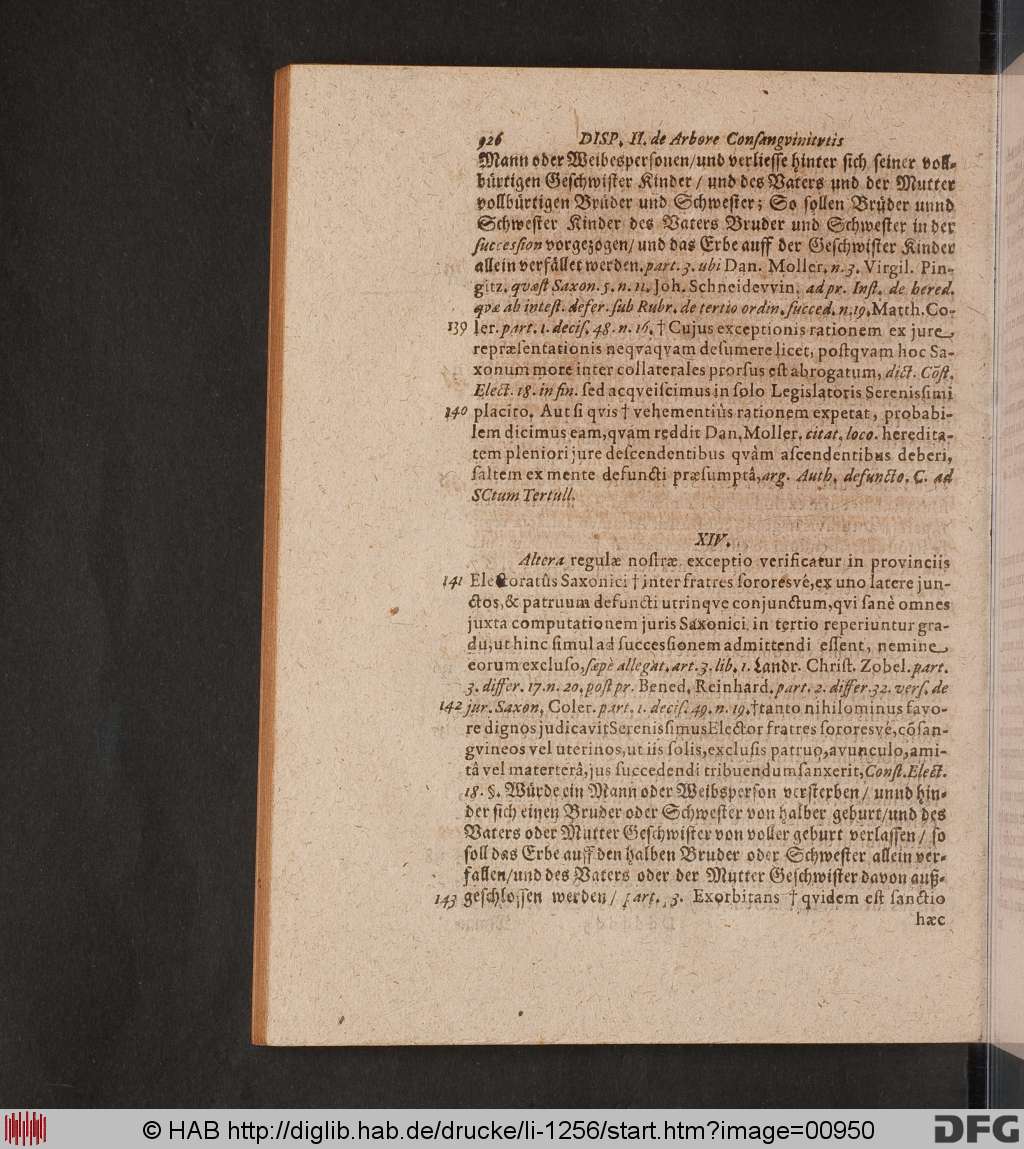 926 DISP. II. de Arbore Consangvinitvtis
Mann oder Weibespersonen/und verliesse hinter sich seiner voll-
bürtigen Geschwister Kinder / und des Vaters und der Mutter
vollbürtigen Brüder und Schwester; So sollen Brüder unnd
Schwester Kinder des Vaters Bruder und Schwester in der
succession vorgezogen/ und das Erbe auff der Geschwister Kinder
allein verfället werden. part. 3. ubi Dan. Moller. n. 3. Virgil. Pin-
gitz. quæst Saxon. 5. n. 11. Joh. Schneidevvin. ad pr. Inst. de hered.
qvæ ab intest. defer. sub Rubr. de tertio ordin. succed. n. 19. Matth. Co-
139 ler. part. 1. decis. 48. n. 16. † Cujus exceptionis rationem ex jure
repræsentationis neqvaqvam desumere licet, postqvam hoc Sa-
xonum more inter collaterales prorsus est abrogatum, dict. Cõst.
Elect. 18. in fin. sed acqveiscimus in solo Legislatoris Serenissimi
140 placito. Aut si qvis † vehementiùs rationem expetat, probabi-
lem dicimus eam, qvam reddit Dan. Moller. citat. loco. heredita-
tem pleniori jure descendentibus qvàm ascendentibus deberi,
saltem ex mente defuncti præsumptâ, arg. Auth. defuncto. C. ad
SCtum Tertull.
XIV.
Altera regulæ nostræ exceptio verificatur in provinciis
141 Electoratûs Saxonici † inter fratres sororesvé, ex uno latere jun-
ctos, & patruum defuncti utrinqve conjunctum, qvi sanè omnes
juxta computationem juris Saxonici in tertio reperiuntur gra-
du, ut hinc simul ad successionem admittendi essent, nemine
eorum excluso, sæpè allegat. art. 3. lib. 1. Landr. Christ. Zobel. part.
3. differ. 17. n. 20. post pr. Bened. Reinhard. part. 2. differ. 32. vers. de
142 jur. Saxon. Coler. part. 1. decis. 49. n. 19. † tanto nihilominus favo-
re dignos judicavit Serenissimus Elector fratres sororesvé, cõsan-
gvineos vel uterinos, ut iis solis, exclusis patruo, avunculo, ami-
tâ vel materterâ, jus succedendi tribuendum sanxerit, Const. Elect.
18. §. Würde ein Mann oder Weibsperson versterben / unnd hin-
der sich einen Bruder oder Schwester von halber geburt/und des
Vaters oder Mutter Geschwister von voller geburt verlassen / so
soll das Erbe auff den halben Bruder oder Schwester allein ver-
fallen/und des Vaters oder der Mutter Geschwister davon auß-
143 geschlossen werden / part. 3. Exorbitans † qvidem est sanctio
hæc
© HAB http://diglib.hab.de/drucke/li-1256/start.htm?image=00950
DFG